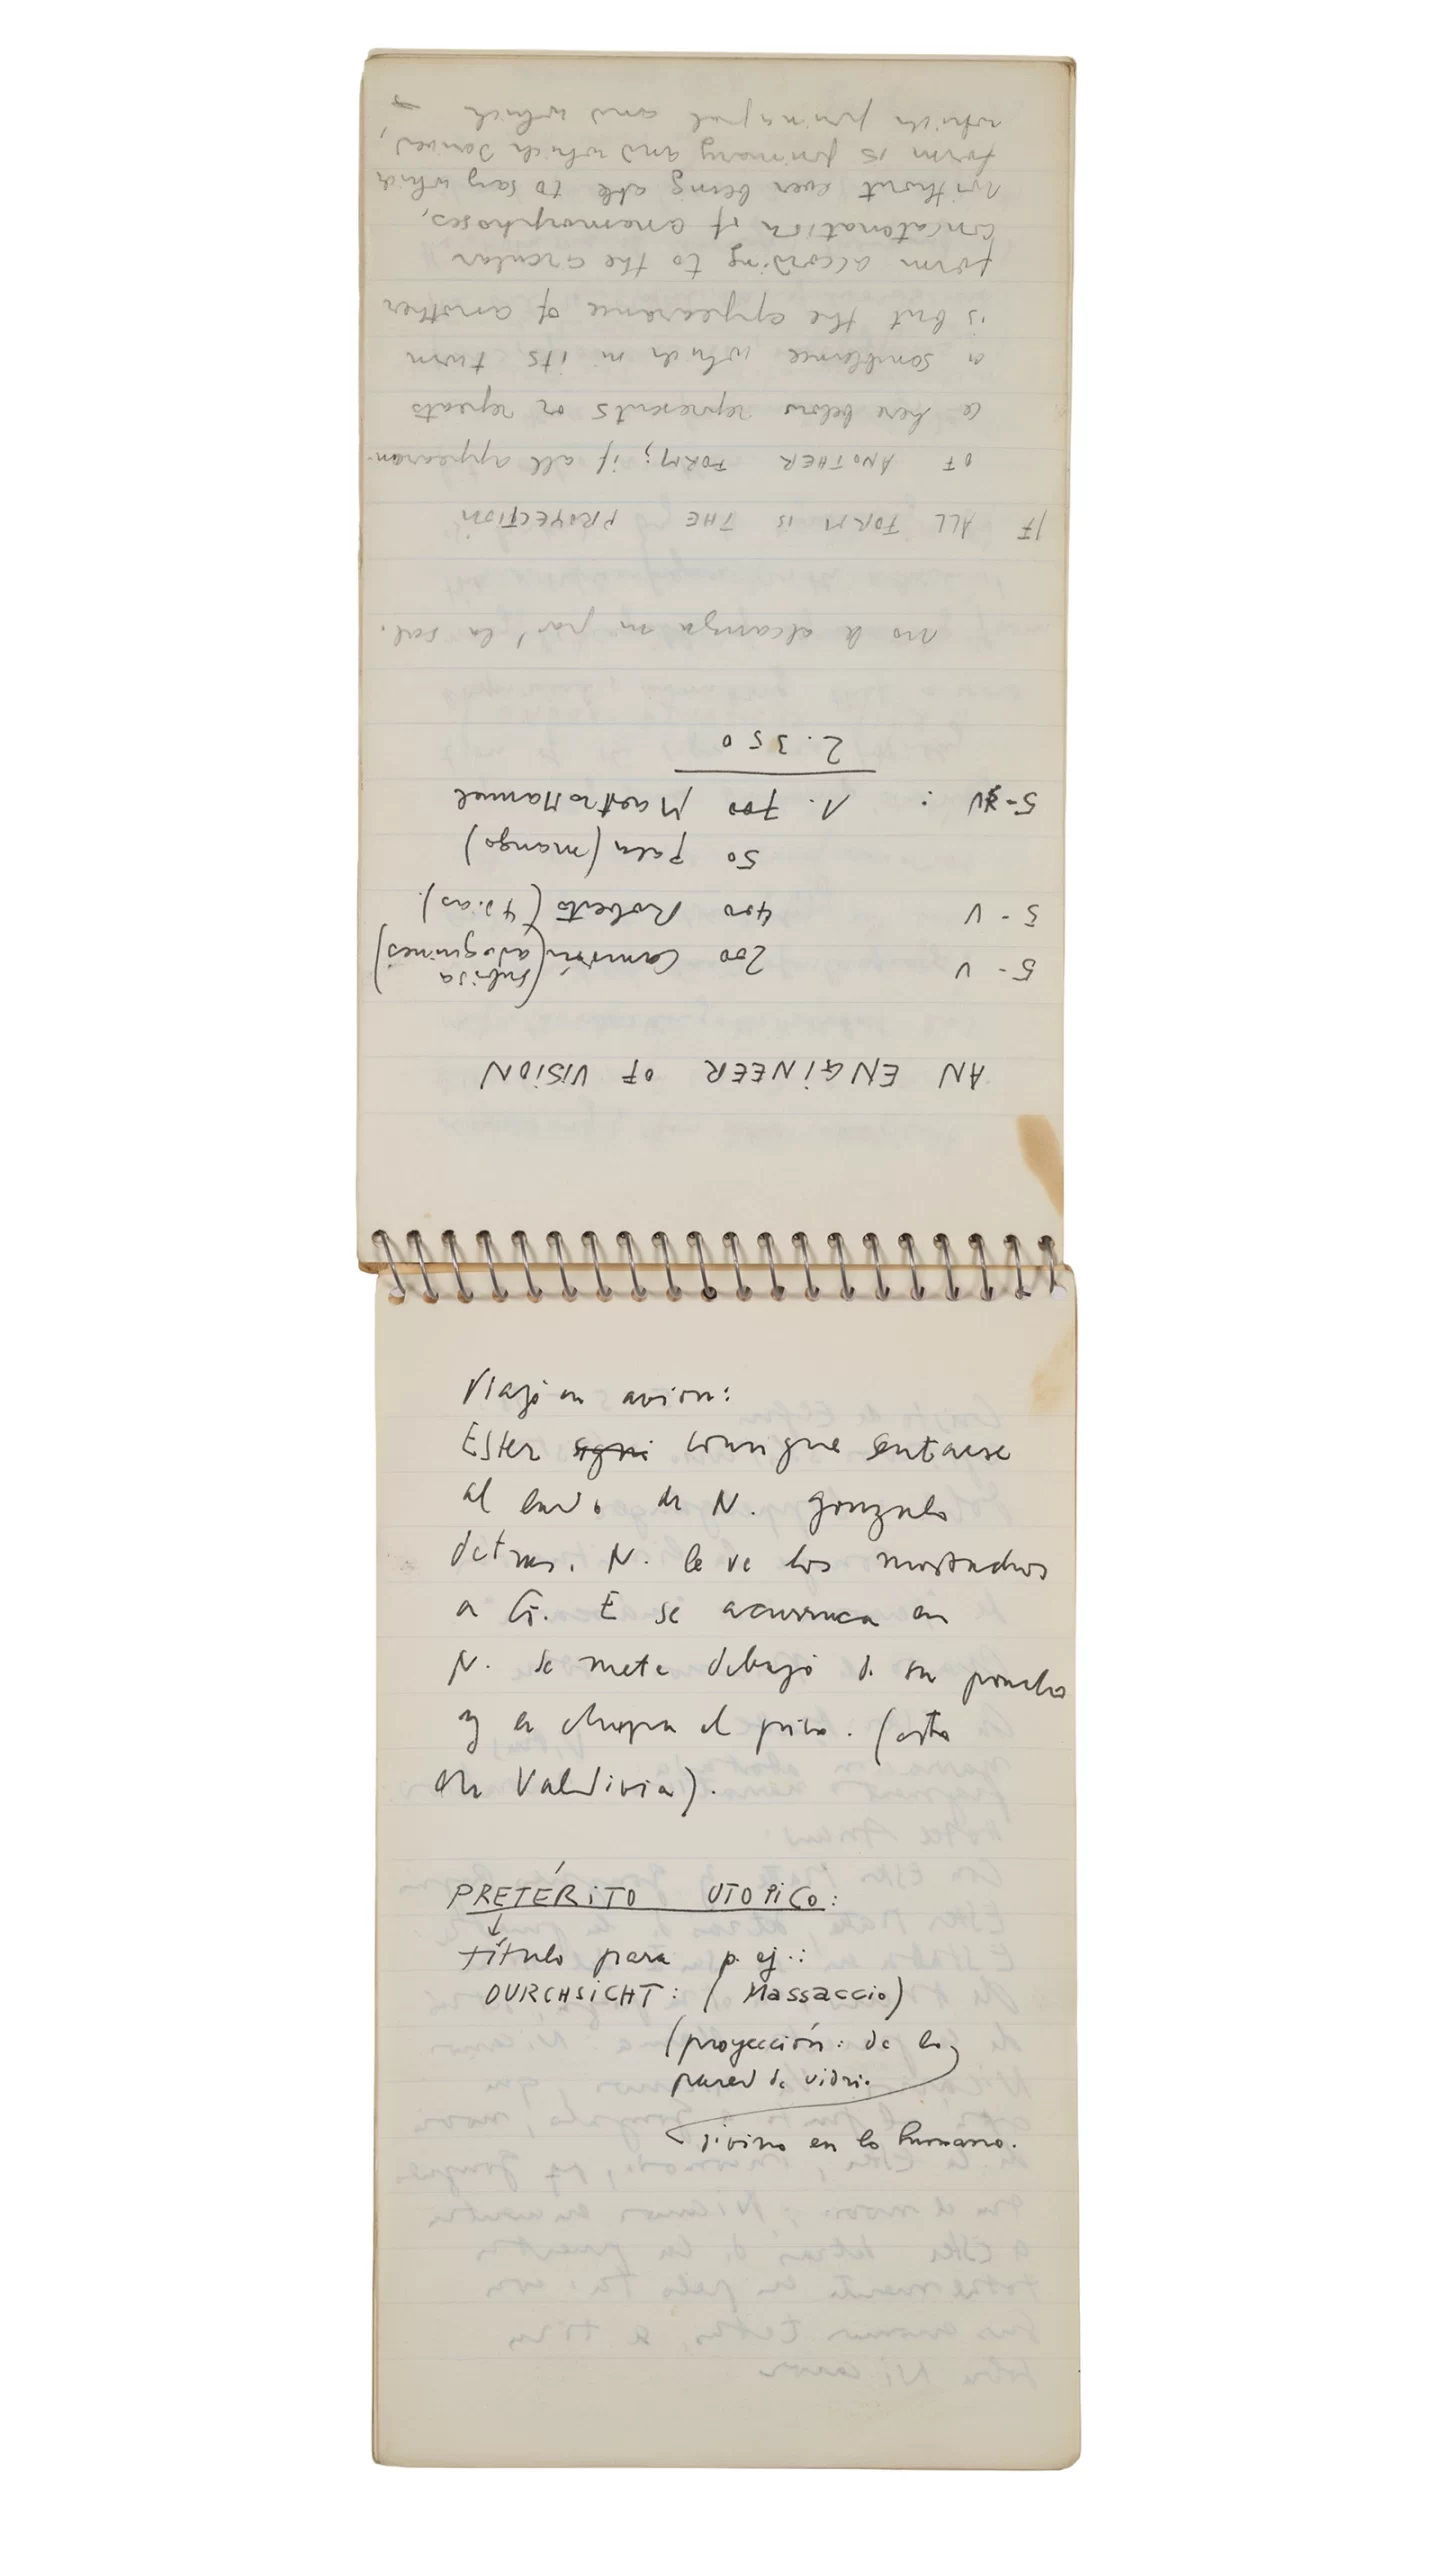 AN ENGINEER OF VISION
5-V 200 Camión (subida adoquines)
5-V 400 Roberto (4 dias).
50 Pala (mango)
5-V : 1.700 Maestro Manuel
2.350
no le alcanza ni pa' la sal.
IF ALL FORM IS THE PROYECTION
OF ANOTHER FORM; if all appearan-
ce here below represents or repeats
a semblance which in its turn
is but the appearance of another
form according to the circular
concatenation of anamorphoses,
without ever being able to say which
form is primary and which derived,
which principal and which
Viaje en avion:
Ester consigue sentarse
al lado de N. Gonzalo
detras. N. le ve los mostachos
a G. E se acurruca en
N. se mete debajo de su poncho
y le chupa el pico. (esto
en Valdivia).
PRETÉRITO UTOPICO:
título para p. ej.:
DURCHSICHT: (Massaccio)
(proyección: de lo
pared de vidrio
divino en lo humano.